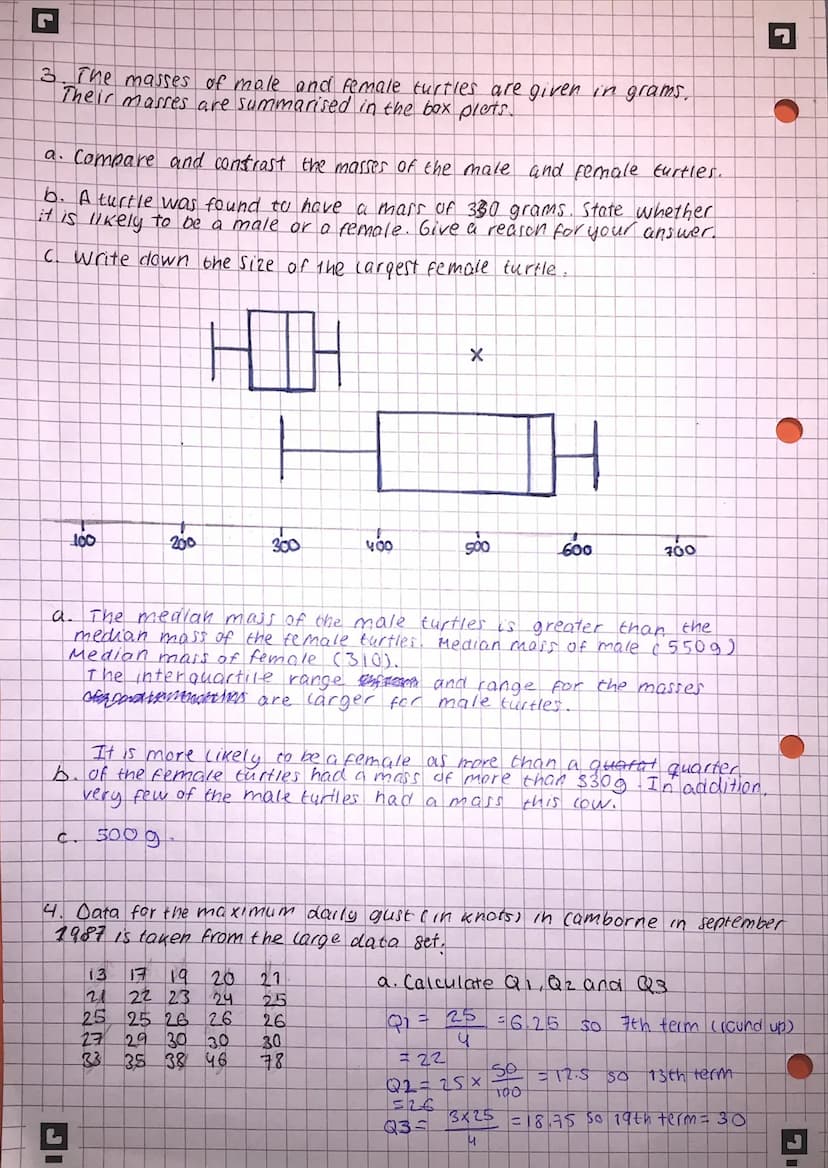 3. The masses of male and female turtles are given in grams.
Their masses are summarised in the box plots.
a. Compare and contrast the masses of the male and female turtles.
b. A turtle was found to have a mass of 330 grams. State whether
it is likely to be a male or a female. Give a reason for your answer.
c. Write down the size of the largest female turtle.
x
100 200 300 400 500 600 700
a. The median mass of the male turtles is greater than the
median mass of the female turtles. Median mass of male (550g)
Median mass of female (310).
The interquartile range and range for the masses
are larger for male turtles.
It is more likely to be a female as more than a quarter
b. of the female turtles had a mass of more than 330g. In addition,
very few of the male turtles had a mass this low.
c. 500g.
4. Data for the maximum daily gust (in knots) in camborne in september
1987 is taken from the large data set.
13 17 19 20 21
21 22 23 24 25
25 25 26 26 26
27 29 30 30 30
33 35 38 46 78
a. Calculate Q1, Q2 and Q3
Q1 = 25/4 = 6.25 so 7th term (round up)
= 22
Q2 = 25 x 50/100 = 12.5 so 13th term
= 26
Q3 = 3x25/4 = 18.75 so 19th term = 30